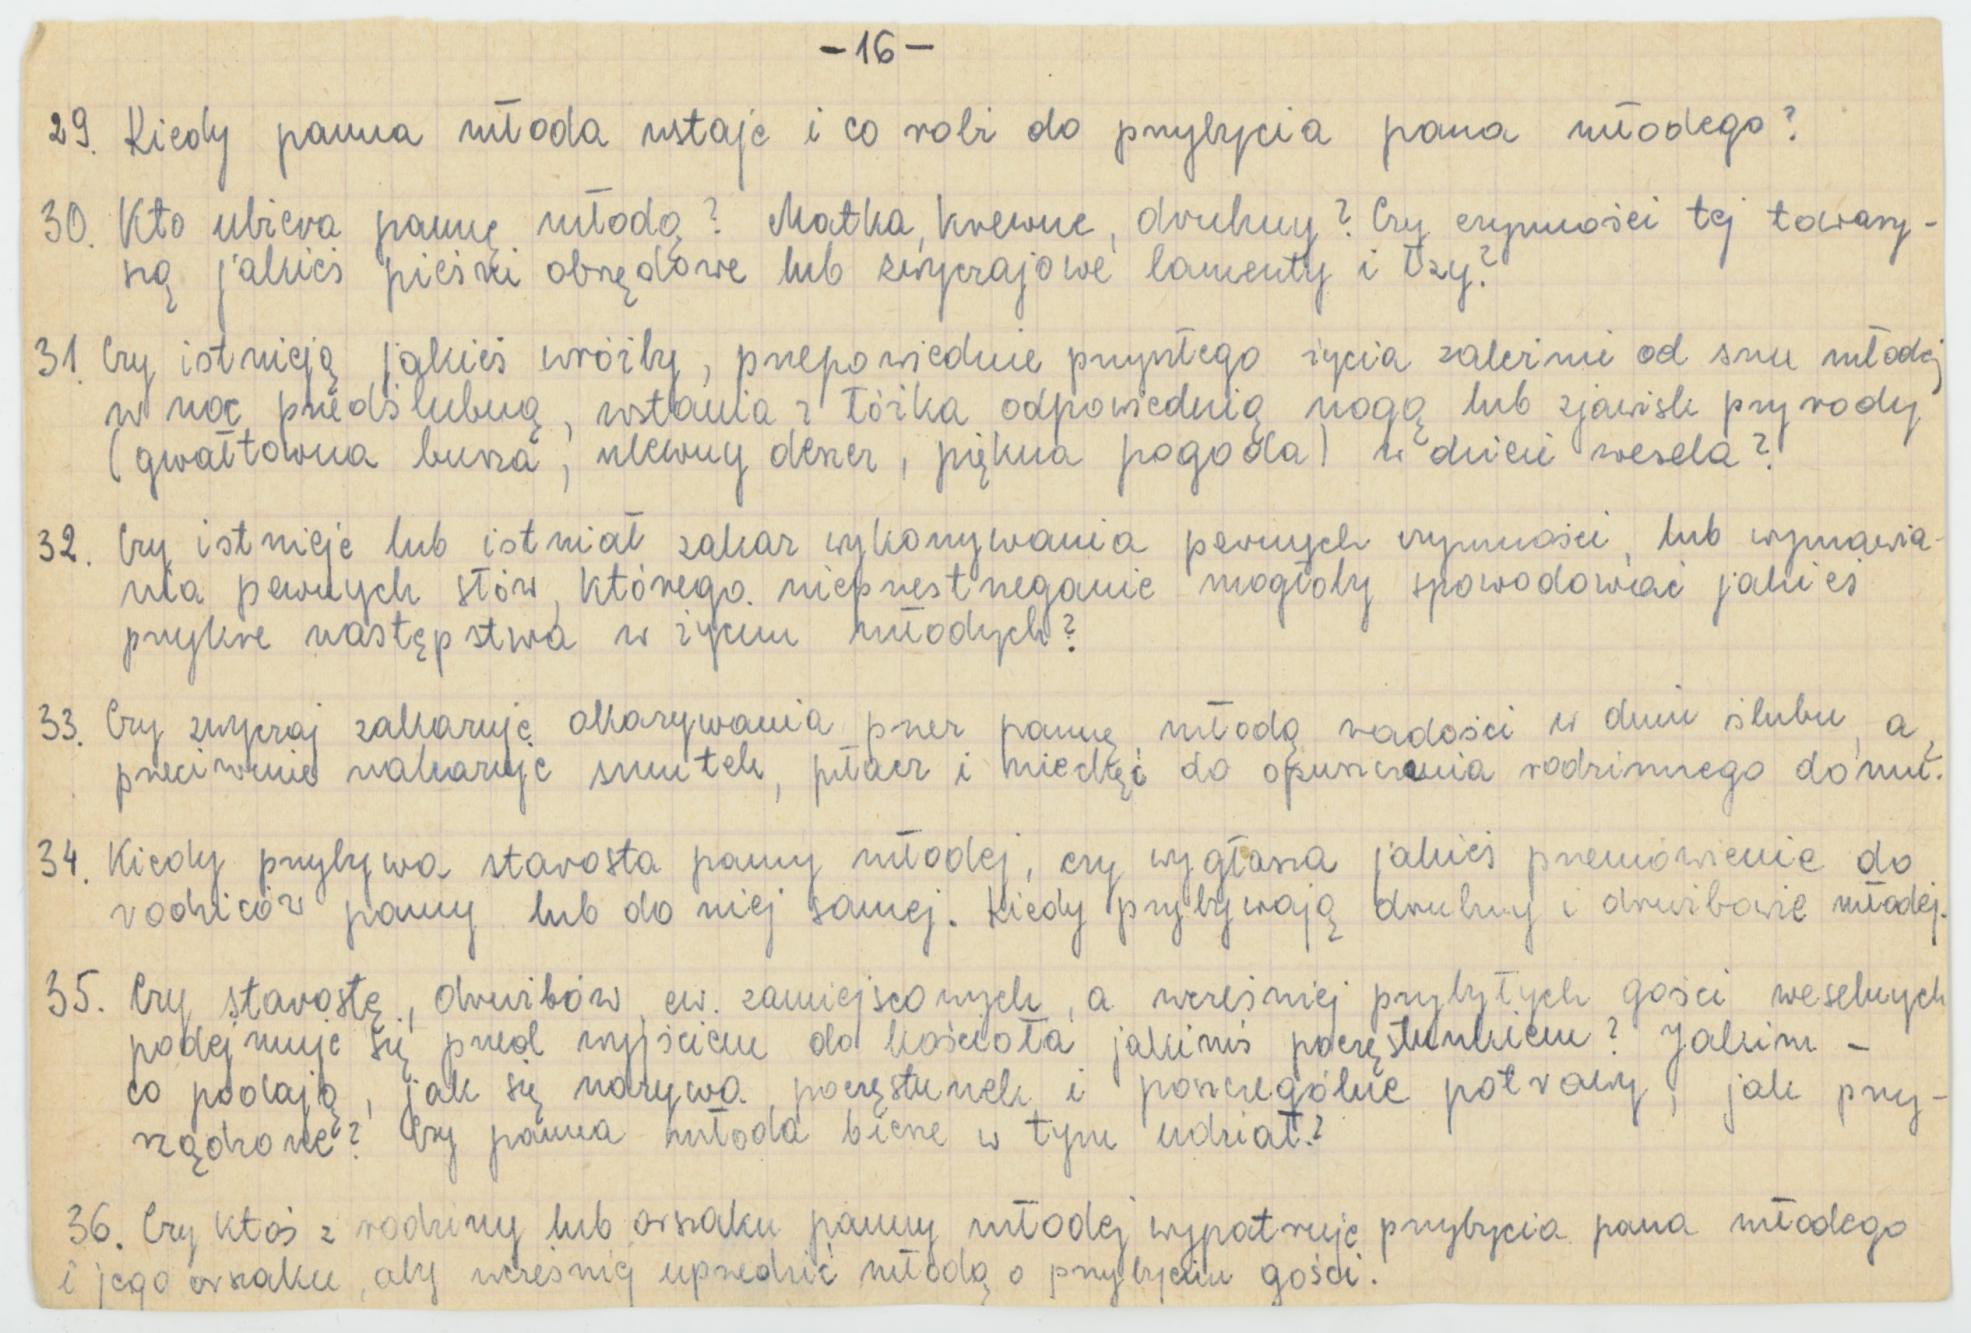 -16-
29. Kiedy panna młoda wstaje i co robi do przybycia pana młodego?
30. Kto ubiera pannę młodą? Matka, krewne, druhny? Czy czynności tej towarzy-
szą jakieś pieśni obrzędowe lub zwyczajowe lamenty i łzy?
31. Czy istnieją jakieś wróżby, przepowiednie przyszłego życia zależnie od snu młodej
w noc przedślubną, wstania z łóżka odpowiednią nogą lub zjawisk przyrody
(gwałtowna burza, ulewny deszcz, piękna pogoda) w dzień wesela?
32. Czy istnieje lub istniał zakaz wykonywania pewnych czynności, lub wymawia-
nia pewnych słów, którego nieprzestrzeganie mogłoby spowodować jakieś
przykre następstwa w życiu młodych?
33. Czy zwyczaj zakazuje okazywania przez pannę młodą radości w dniu ślubu, a
przeciwnie nakazuje smutek, płacz i niechęć do opuszczenia rodzinnego domu.
34. Kiedy przybywa starosta panny młodej, czy wygłasza jakieś przemówienie do
rodziców panny lub do niej samej. Kiedy przybywają druhny i drużbowie młodej.
35. Czy starostę, drużbów, ew. zamiejscowych, a wcześniej przybyłych gości weselnych
podejmuje się przed wyjściem do kościoła jakimś poczęstunkiem? Jakim -
co podają, jak się nazywa poczęstunek i poszczególne potrawy, jak przy-
rządzone? Czy panna młoda bierze w tym udział?
36. Czy ktoś z rodziny lub orszaku panny młodej wypatruje przybycia pana młodego
i jego orszaku, aby wcześniej uprzedzić młodą o przybyciu gości.